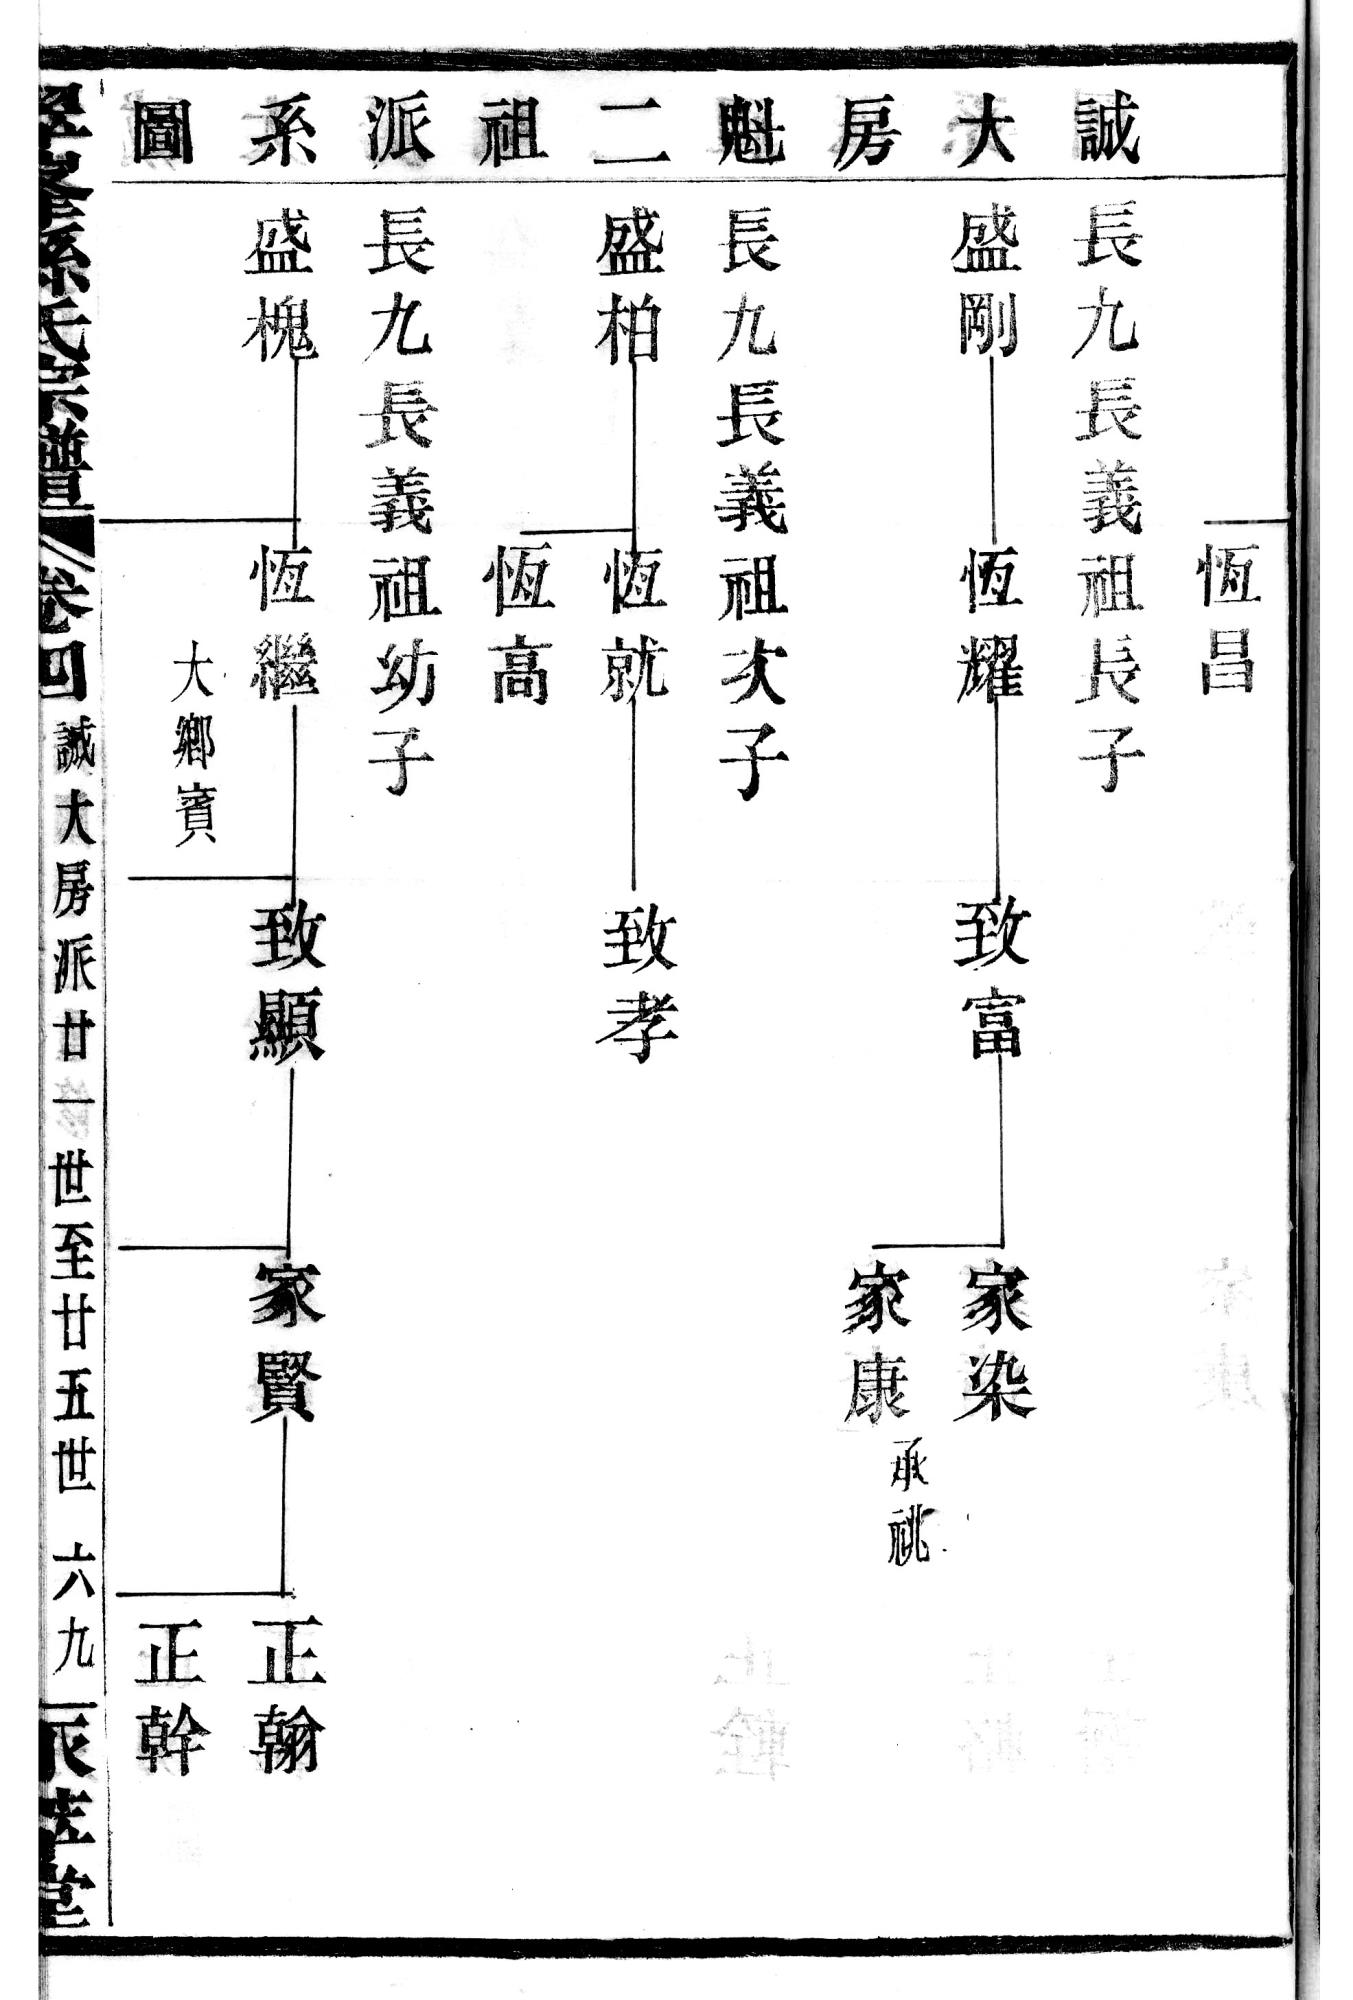 誠大房魁二祖派系圖
恆昌
長九長義祖長子
盛剛
恆耀
致富
家染
家康
承祧
長九長義祖次子
盛柏
恆就
致孝
恆高
長九長義祖幼子
盛槐
恆繼
致顯
家賢
正翰
大鄉賓
正幹
孫氏宗譜
卷四
誠大房派廿一世至廿五世
六九
堂